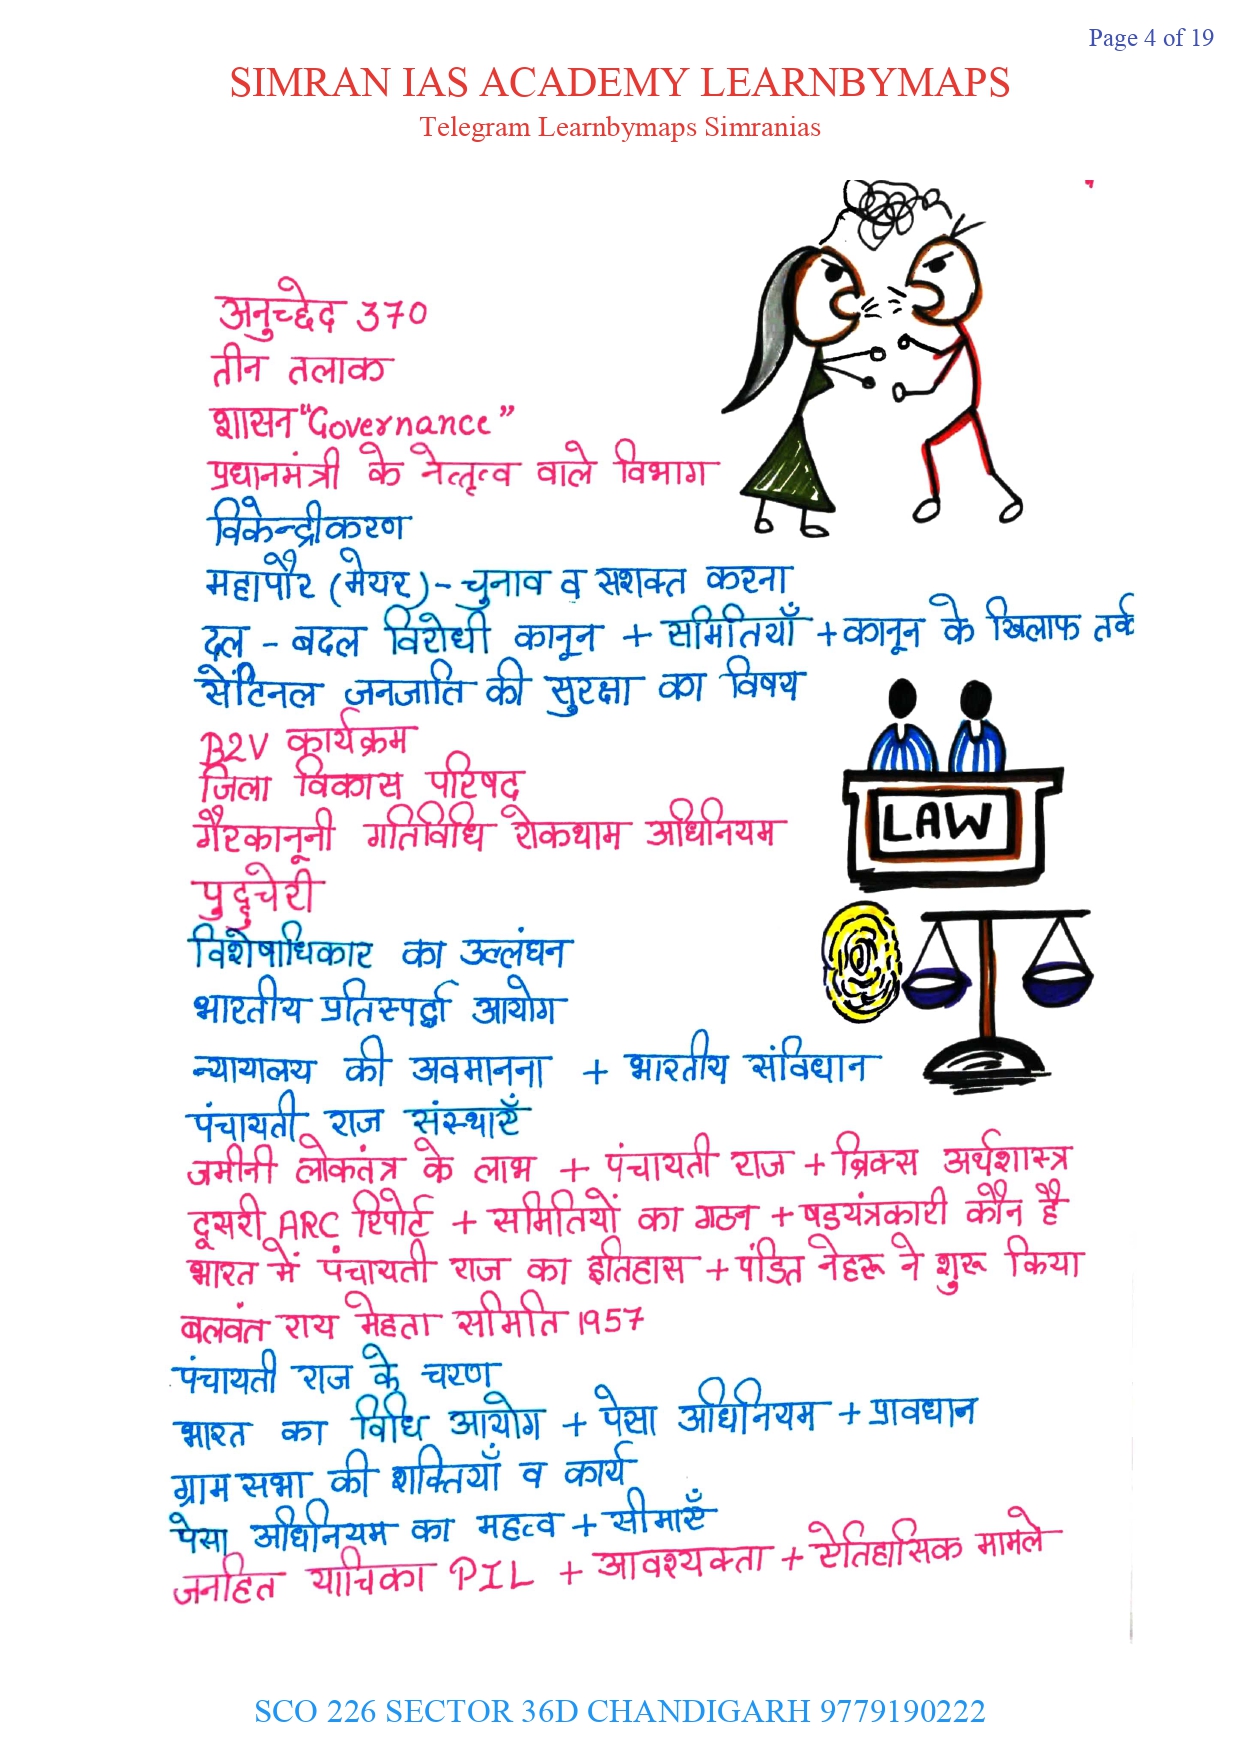 Page 4 of 19
SIMRAN IAS ACADEMY LEARNBYMAPS
Telegram Learnbymaps Simranias
अनुच्छेद 370
तीन तलाक
शासन "Governance"
प्रधानमंत्री के नेत्तृत्व वाले विभाग
विकेन्द्रीकरण
महापौर (मेयर) - चुनाव व सशक्त करना
दल - बदल विरोधी कानून + समितियाँ + कानून के खिलाफ तर्क
सेंटिनल जनजाति की सुरक्षा का विषय
B2V कार्यक्रम
जिला विकास परिषद
LAW
गैरकानूनी गतिविधि रोकथाम अधिनियम
पुद्दुचेरी
विशेषाधिकार का उल्लंघन
भारतीय प्रतिस्पर्द्धा आयोग
न्यायालय की अवमानना + भारतीय संविधान
पंचायती राज संस्थाएँ
जमीनी लोकतंत्र के लाभ + पंचायती राज + ब्रिक्स अर्थशास्त्र
दूसरी ARC रिपोर्ट + समितियों का गठन + षडयंत्रकारी कौन है
भारत में पंचायती राज का इतिहास + पंडित नेहरू ने शुरू किया
बलवंत राय मेहता समिति 1957
पंचायती राज के चरण
भारत का विधि आयोग + पेसा अधिनियम + प्रावधान
ग्राम सभा की शक्तियाँ व कार्य
पेसा अधिनियम का महत्व + सीमाएँ
जनहित याचिका PIL + आवश्यकता + ऐतिहासिक मामले
SCO 226 SECTOR 36D CHANDIGARH 9779190222